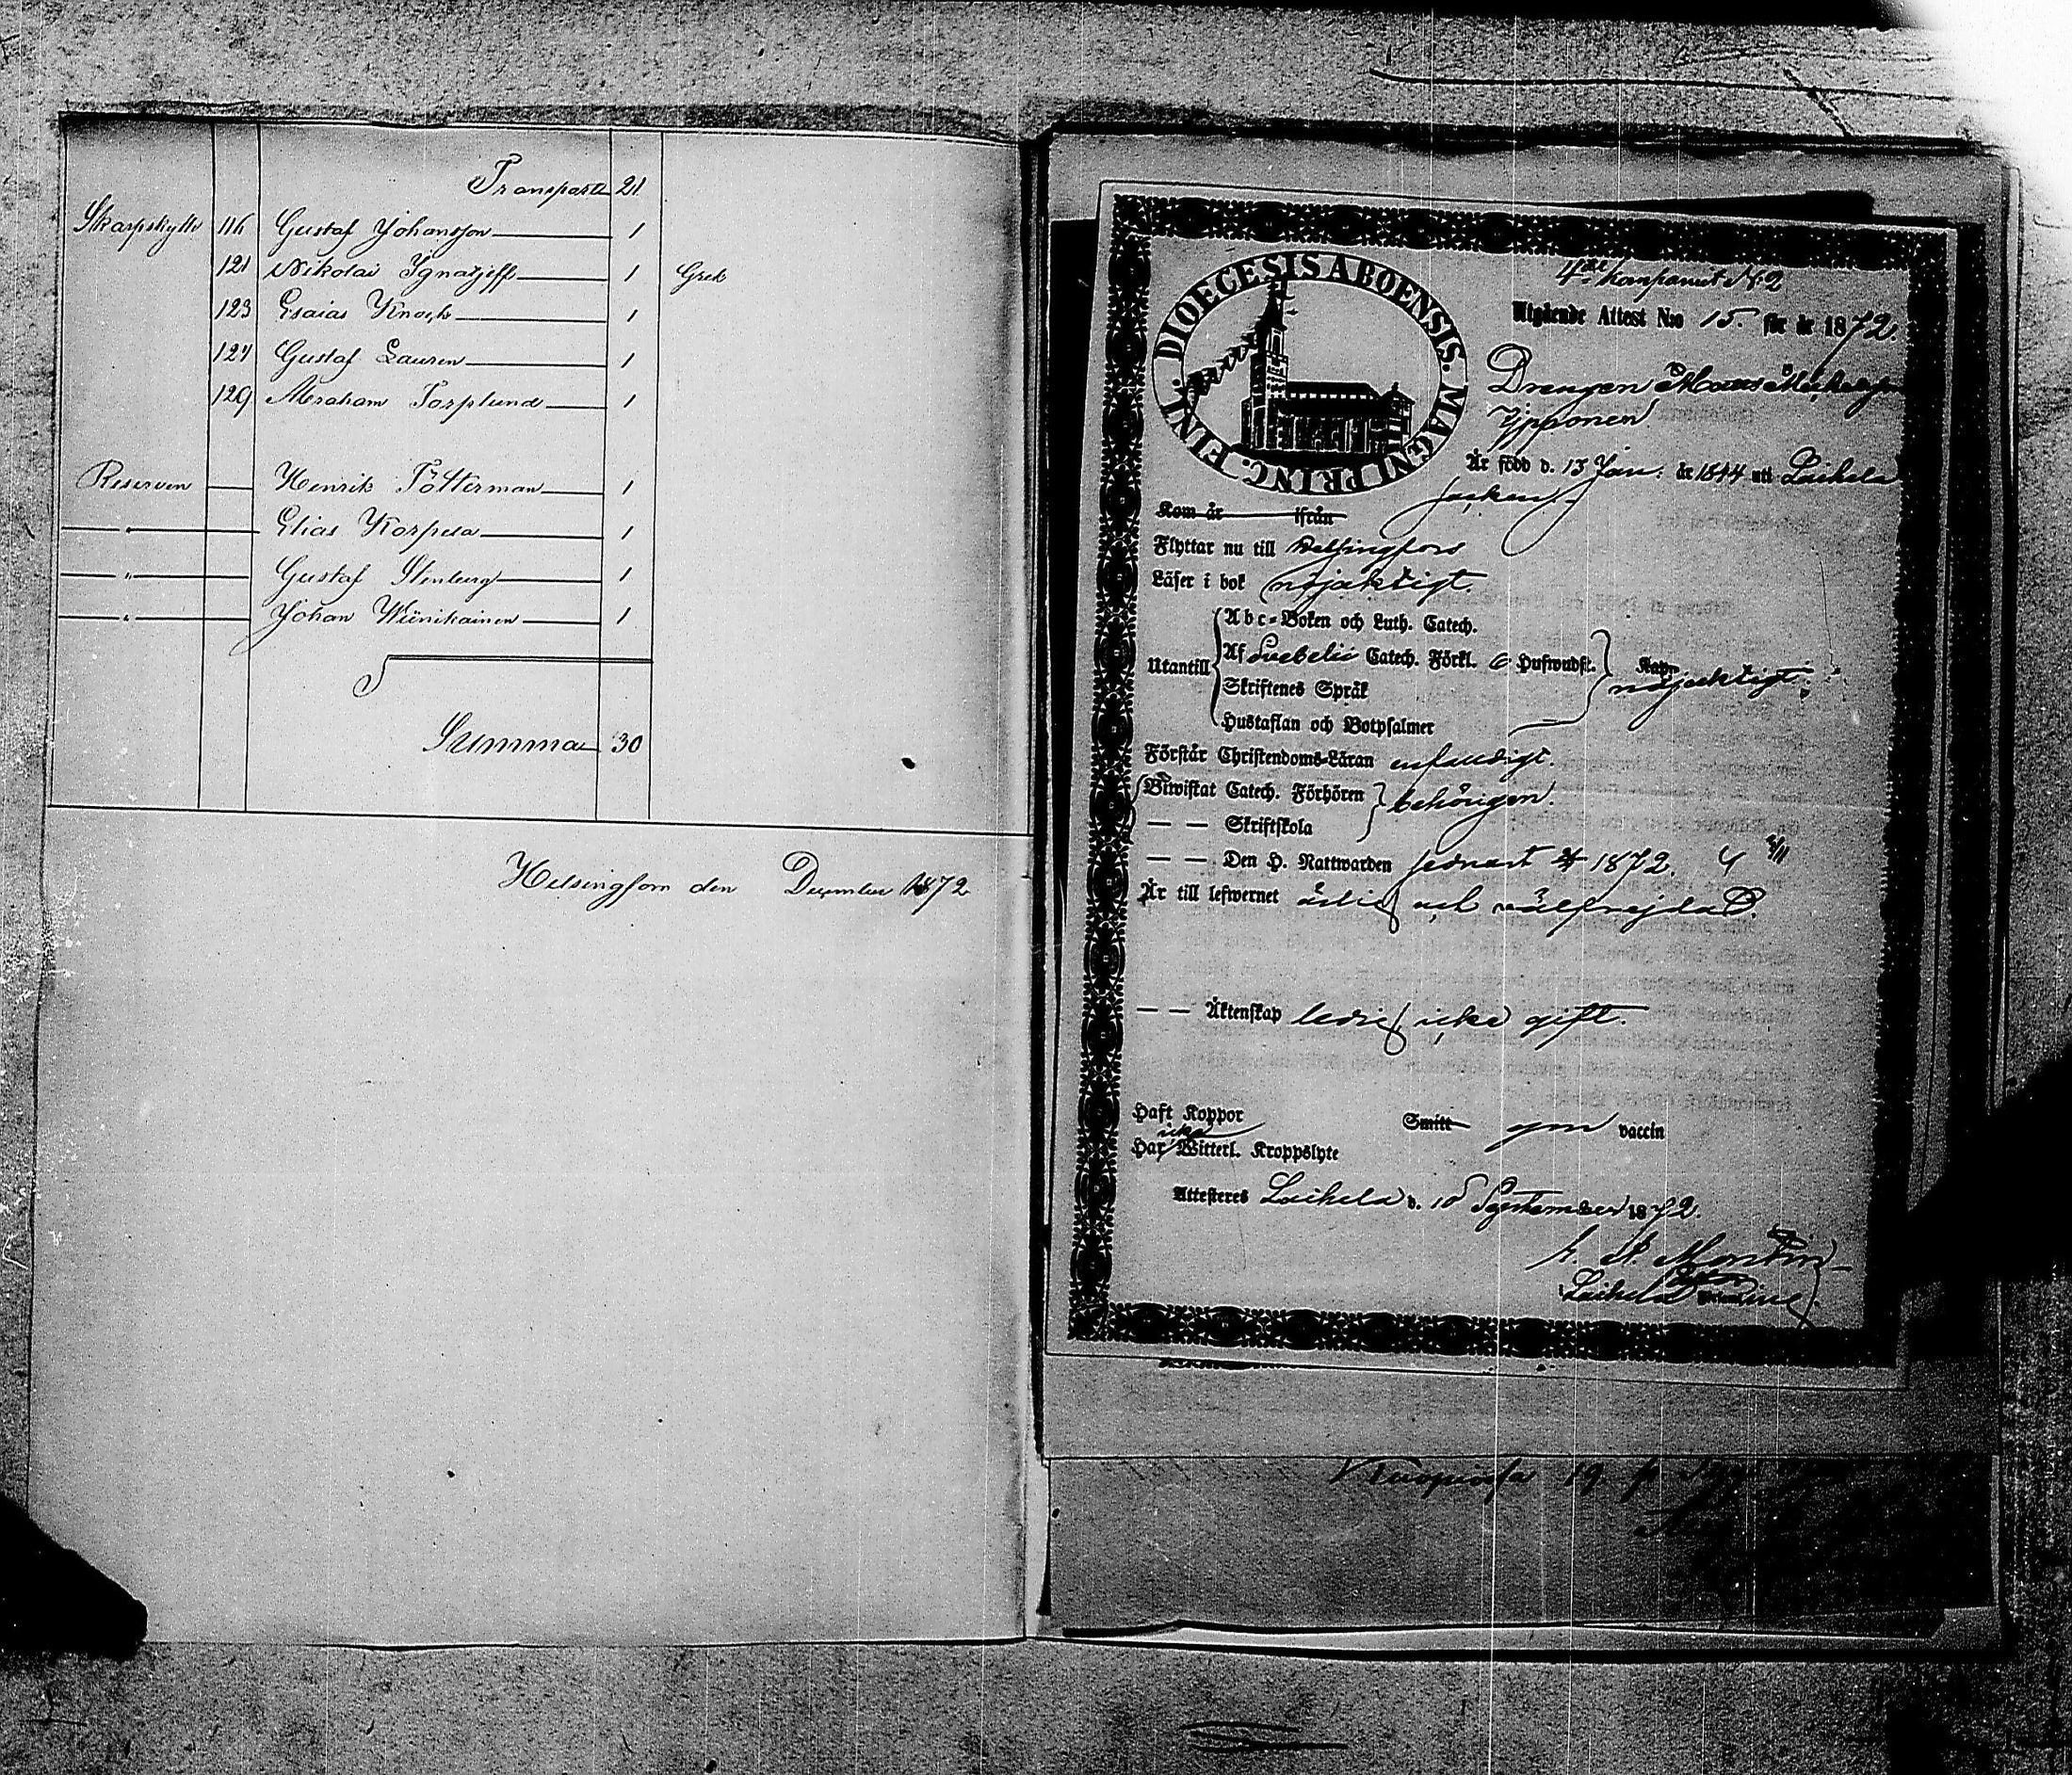 Transport 21
Skarpskytte 116 Gustaf Johansson 1
121 Nikolai Ignatjeff 1 Grek
123 Esaias Knock 1
127 Gustaf Lauren 1
129 Abraham Forslund 1
Reserven Henrik Fötterman 1
" Elias Korpela 1
" Gustaf Stenberg 1
" Johan Wiinikainen 1
Summa 30
Helsingfors den December 1872
DIOECESIS ABOENSIS. MAGNI PRINC. FINL.
4de Kompaniet N:2
Utgående Attest N:o 15. för år 1872.
Drengen
Ypponen
Är född d. 13 Jan. år 1844 uti Laihela
socken.
Kom år ifrån
Flyttar nu till Helsingfors
Läser i bok nöjaktigt.
Abc-Boken och Luth. Catech.
Utantill Af Svebelii Catech. Förkl. 6 Hufwudst. nöjaktigt.
Skriftenes Språk
Hustaflan och Botpsalmer
Förstår Christendoms-Läran enfaldigt.
Biwistat Catech. Förhören behörigen.
— — Skriftskola
— — Den H. Nattwarden senast 1872.
Är till lefwernet ärlig och välfrejdad.
— — Äktenskap ledig icke gift.
Haft Koppor Smitt gm vaccin
icke
Har Witterl. Kroppslyte
Attesteras Laihela d. 10 September 1872.
Laihela